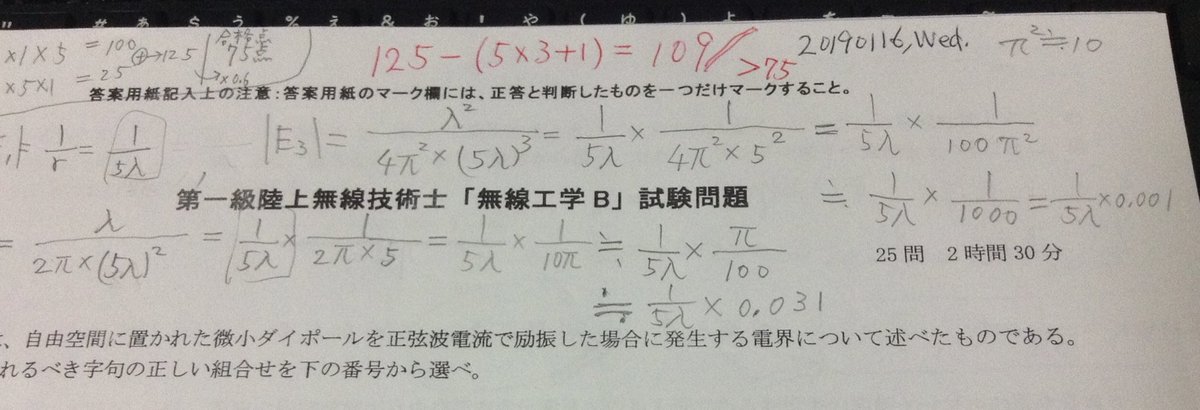 " # あ ち う % え & お ' や ( ゆ ) よ
×1×5 =100 ⊕→125 合格点 75点
×5×1 =25 →×0.6
125-(5×3+1)=109 >75
20190116,Wed. π²≒10
答案用紙記入上の注意:答案用紙のマーク欄には、正答と判断したものを一つだけマークすること。
1/r = 1/5λ |E₃|= λ²/4π²×(5λ)³ = 1/5λ × 1/4π²×5² = 1/5λ × 1/100π²
≒ 1/5λ × 1/1000 = 1/5λ ×0.001
第一級陸上無線技術士「無線工学B」試験問題
= λ/2π×(5λ)² = 1/5λ × 1/2π×5 = 1/5λ × 1/10π ≒ 1/5λ × π/100
25問 2時間30分
≒ 1/5λ × 0.031
、自由空間に置かれた微小ダイポールを正弦波電流で励振した場合に発生する電界について述べたものである。
れるべき字句の正しい組合せを下の番号から選べ。